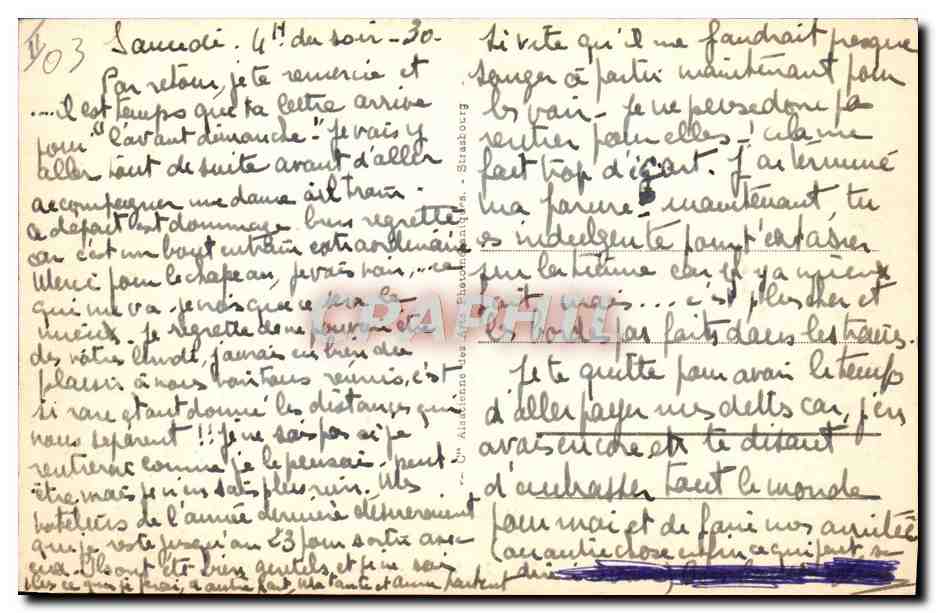 II/03
Samedi. 4H du soir - 30 -
Par retour, je te remercie et
.... il est temps que ta lettre arrive
pour "l'avant dimanche". Je vais y
aller tout de suite avant d'aller
accompagner une dame à il train.
Ce départ est dommage bien regretté
car c'est un bout entrain extraordinaire
Merci pour le chapeau, je vais voir, ... ce
qui me va. Je vois que ce sera le
mieux. Je regrette de ne pouvoir être
des vôtres lundi, j'aurais eu bien du
plaisir à nous voir tous réunis, c'est
si rare étant donné les distances qui
nous séparent !! Je ne sais pas si je
rentrerai comme je le pensais - peut-
être, mais je n'en sais plus rien. Mes
hôteliers de l'année dernière désireraient
que je reste jusqu'au 23 pour sortir avec
eux. Ils ont été bien gentils et je ne sais
plus ce que je ferai, d'autre part, ma tante et Anne partent
si vite qu'il me faudrait presque
songer à partir maintenant pour
les voir. Je ne pense donc pas
rentrer pour elles ! cela me
fait trop d'écart. J'ai terminé
ma parure - maintenant, tu
es indulgente pour t'extasier
sur la tienne car il y a mieux
fait, mais .... c'est plus cher et
les bords pas faits dans les trains.
Je te quitte pour avoir le temps
d'aller payer mes dettes car, j'en
avais encore et te disant
d'embrasser tout le monde
pour moi et de faire nos amitiés
(ou autre chose enfin ce qui peut se
dire
Cie Alsacienne des Arts Photomécaniques. - Strasbourg
CPAPHIL